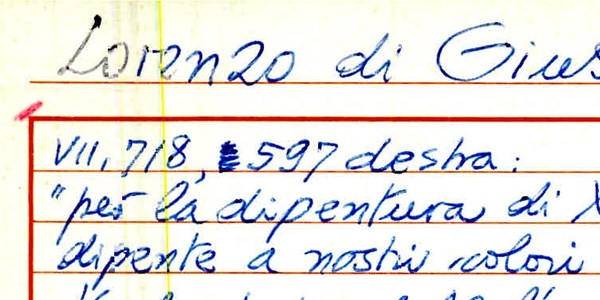 Lorenzo di Gius
VII, 718, 597 destra:
"per la dipentura di X
dipente a nostri colori